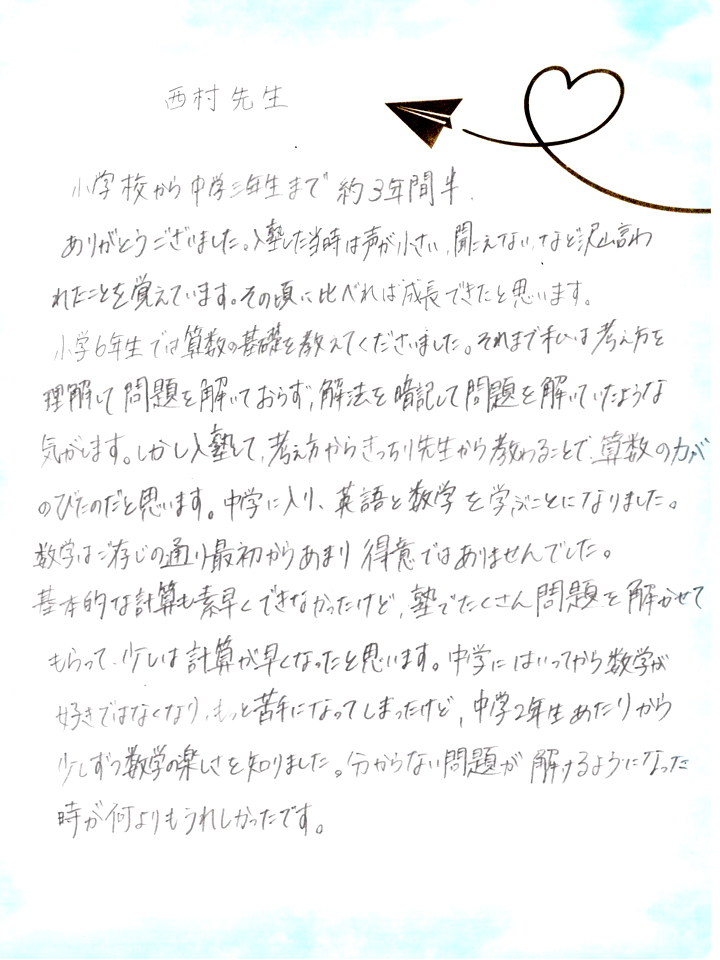 西村先生
小学校から中学三年生まで約3年間半、
ありがとうございました。入塾した当時は声が小さい、聞こえない、など沢山言わ
れたことを覚えています。その頃に比べれば成長できたと思います。
小学6年生では算数の基礎を教えてくださいました。それまで私は考え方を
理解して問題を解いておらず、解法を暗記して問題を解いていたような
気がします。しかし入塾して、考え方からきっちり先生から教わることで、算数の力が
のびたのだと思います。中学に入り、英語と数学を学ぶことになりました。
数学はご存じの通り最初からあまり得意ではありませんでした。
基本的な計算も素早くできなかったけど、塾でたくさん問題を解かせて
もらって、少しは計算が早くなったと思います。中学にはいってから数学が
好きではなくなり、もっと苦手になってしまったけど、中学2年生あたりから
少しずつ数学の楽しさを知りました。分からない問題が解けるようになった
時が何よりもうれしかったです。